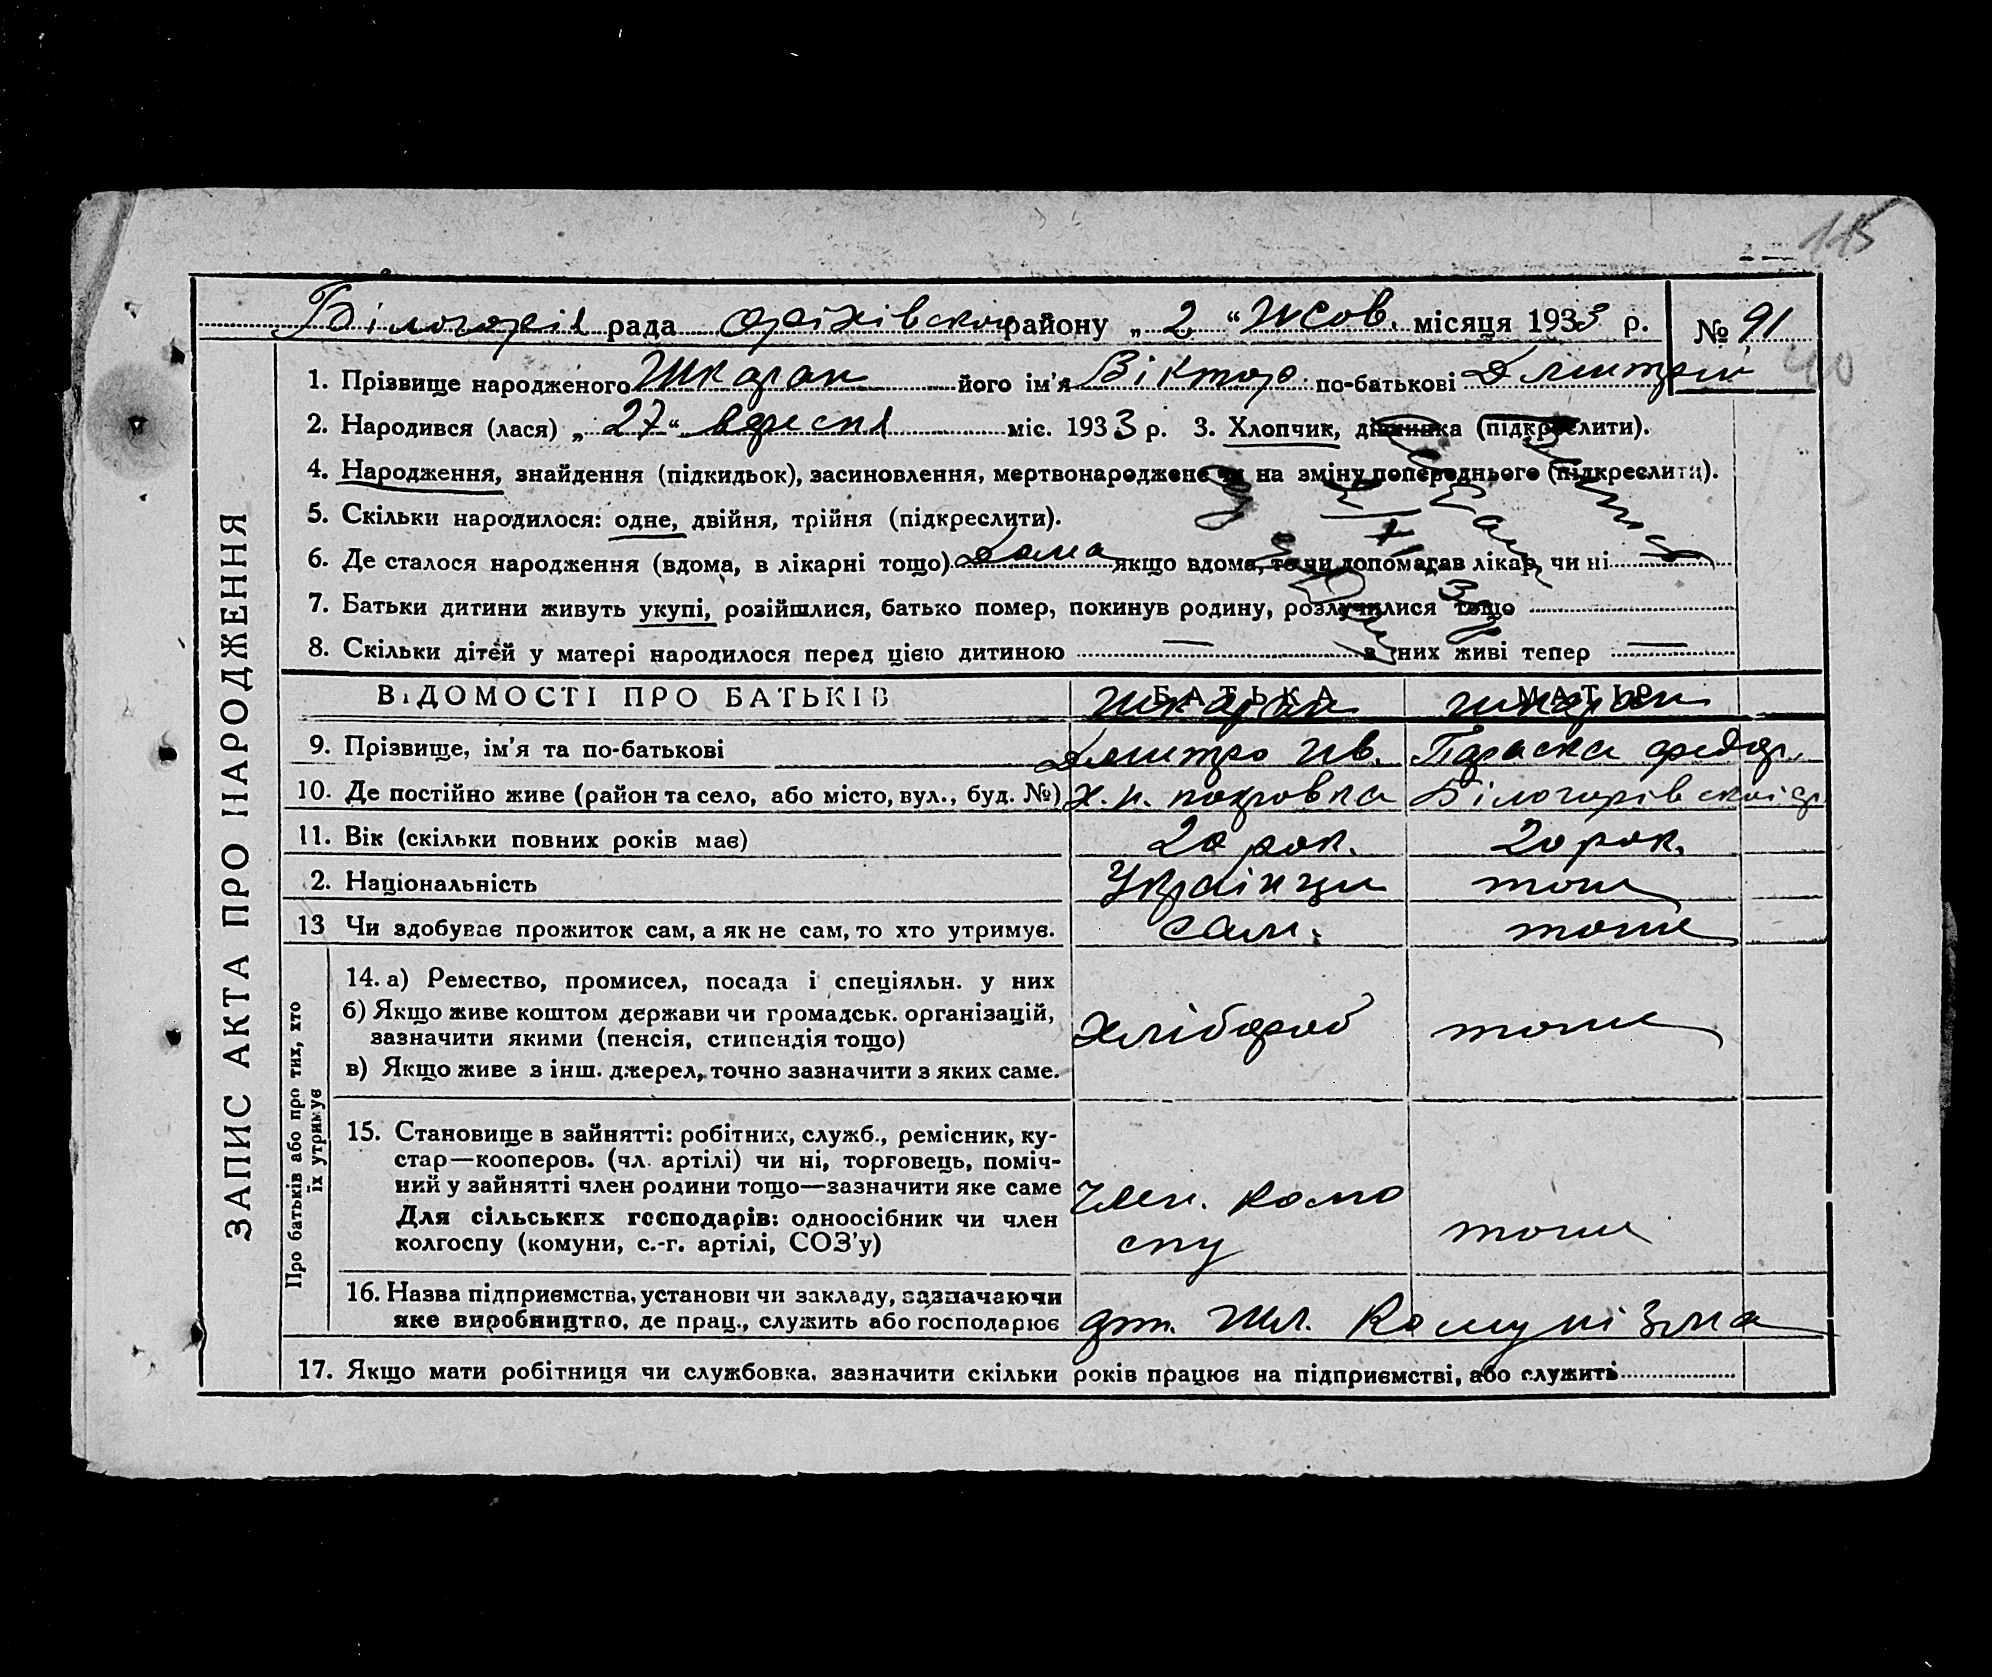 115
Білогорів рада Оріхівского району „ 2 “ Жов. місяця 1933 р. № 91
40
1. Прізвище народженого Шкаран його ім'я Віктор по-батькові Дмитрій
2. Народився (лася) „ 27 “ вересня міс. 1933 р. 3. Хлопчик, дівчинка (підкреслити).
4. Народження, знайдення (підкидьок), засиновлення, мертвонароджене чи на зміну попереднього (підкреслити).
5. Скільки народилося: одне, двійня, трійня (підкреслити).
6. Де сталося народження (вдома, в лікарні тощо) Дома якщо вдома, то чи допомагав лікар, чи ні
7. Батьки дитини живуть укупі, розійшлися, батько помер, покинув родину, розлучилися тощо
8. Скільки дітей у матері народилося перед цією дитиною — з них живі тепер —
ВІДОМОСТІ ПРО БАТЬКІВ БАТЬКА МАТІР
Шкаран Шкаран
9. Прізвище, ім'я та по-батькові Дмитро Ив. Параска Федор.
10. Де постійно живе (район та село, або місто, вул., буд. №) х. н. покровка Білогорівскоі
11. Вік (скільки повних років має) 20 рок. 20 рок.
2. Національність Українци тоже
13 Чи здобуває прожиток сам, а як не сам, то хто утримує. сам. тоже
14. а) Ремество, промисел, посада і спеціяльн. у них
б) Якщо живе коштом держави чи громадськ. організацій,
зазначити якими (пенсія, стипендія тощо) Хлібороб тоже
в) Якщо живе з інш. джерел, точно зазначити з яких саме.
15. Становище в зайнятті: робітник, служб., ремісник, ку-
стар—кооперов. (чл. артілі) чи ні, торговець, поміч-
ний у зайнятті член родини тощо—зазначити яке саме
Для сільських господарів: одноосібник чи член
колгоспу (комуни, с.-г. артілі, СОЗ'у)
Член.
спу тоже
16. Назва підприємства, установи чи закладу, зазначаючи
яке виробництво, де прац., служить або господарює арт. Шл. Комунізма
17. Якщо мати робітниця чи службовка, зазначити скільки років працює на підприємстві, або служить
ЗАПИС АКТА ПРО НАРОДЖЕННЯ
Про батьків або про тих, хто
їх утримує